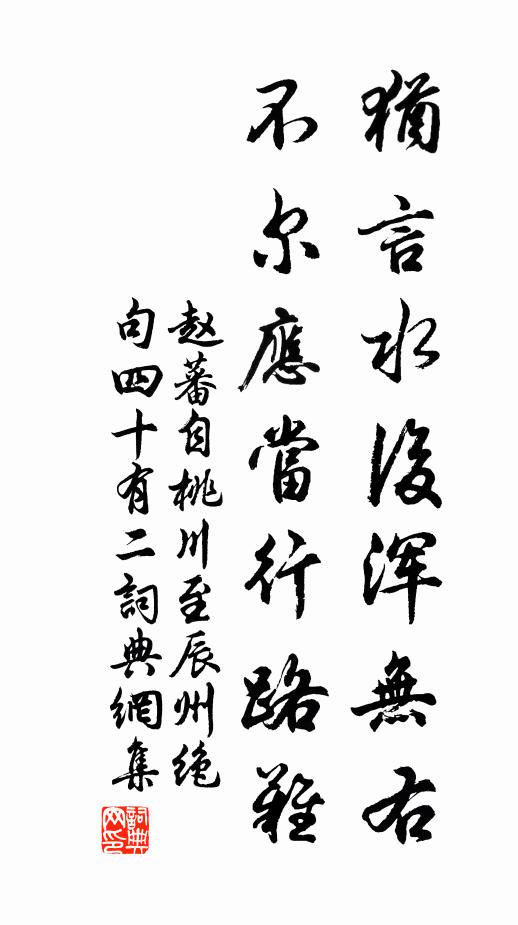 猶言水後浑無右
不尔應當行路難
赵蕃自桃川至辰州绝
句四十有二詞典網集
詞典
网印